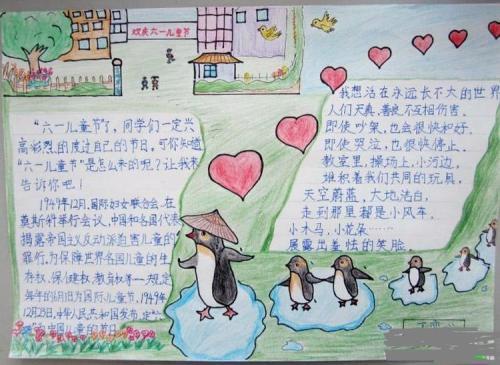 欢庆六一儿童节
"六一儿童节"了，同学们一定兴
高彩烈的度过自己的节日，可你知道
"六一儿童节"是怎么来的呢？让我来
告诉你吧！
1949年12月，国际妇女联合会，在
莫斯科举行会议，中国和各国代表
揭露帝国主义反动派当害儿童的
罪行，为保障世界各国儿童的生
存权，保健权，教育权等一规定
每年的6月1日为国际儿童节，1949年
12月23日，中华人民共和国发布，定"六
中国儿童的节日
我想活在永远长不大的世界
人们天真，善良不互相伤害。
即使吵架，也会很快和好。
即使哭泣，也很快停止。
教室里，操场上，小河边，
堆积着我们共同的玩具。
天空蔚蓝，大地洁白，
走到那里都是小风车，
小木马，小花朵……
展露出羞怯的笑脸。